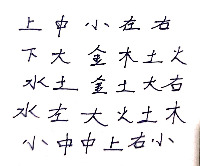 上中小在右
下大金木土火
水土金土大右
水左大火土木
小中中上右小